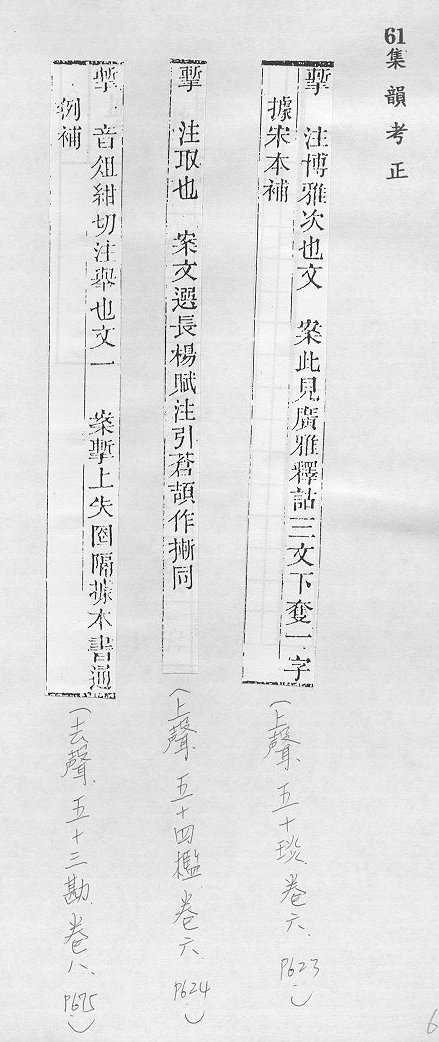 61
集韻考正
摮 注博雅次也文 案此見廣雅釋詁三文下奪一字
據宋本補
(上聲、五十琰、卷六、P623、)
摮 注取也 案文選長楊賦注引蒼頡作摲同
(上聲、五十四檻、卷六、P624、)
音俎紺切注舉也文一 案上失圈隔據本書通
例補
(去聲、五十三勘、卷八、P675、)
6